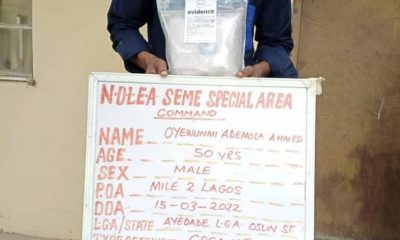 evidence
N·D·L·E·A SEME SPECIAL AREA
COMMAND
NAME OYENUNMI ADEMOLA AHMED
AGE 50 YRS
SEX MALE
P.O.A MILE 2 LAGOS
D.O.A 15-03-2022
L.G.A/STATE AYEDADE L.G.A OSUN ST.